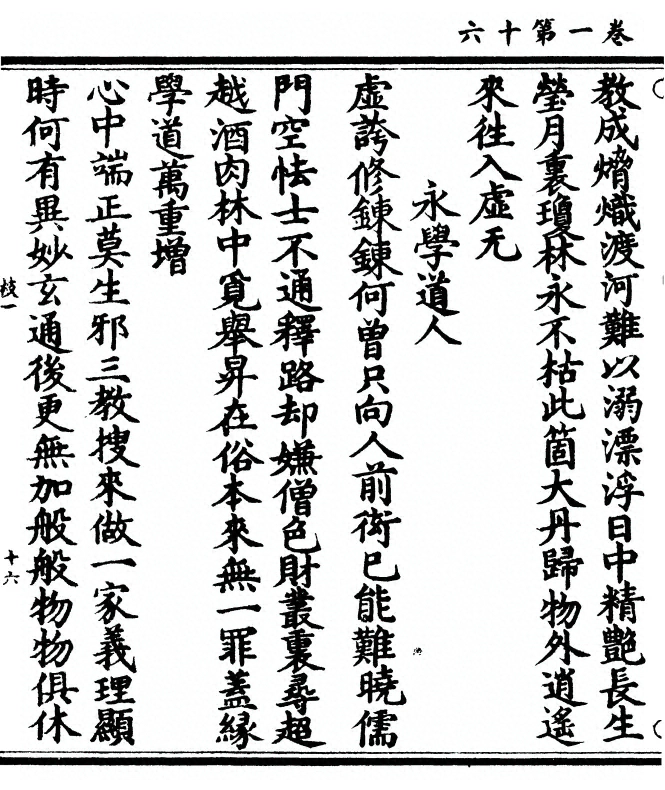 卷一第十六
教成熾渡河難以溺漂浮日中精艷長生
瑩月裏瓊林永不枯此箇大丹歸物外逍遙
來徃入虛无
永學道人
虛誇修鍊鍊何曾只向人前衒已能難曉儒
門空怯士不通釋路却嫌僧色財叢裏尋超
越酒肉林中覓舉昇在俗本來無一罪蓋緣
學道萬重增
心中端正莫生邪三教搜來做一家義理顯
時何有異妙玄通後更無加般般物物俱休
枝一
十六